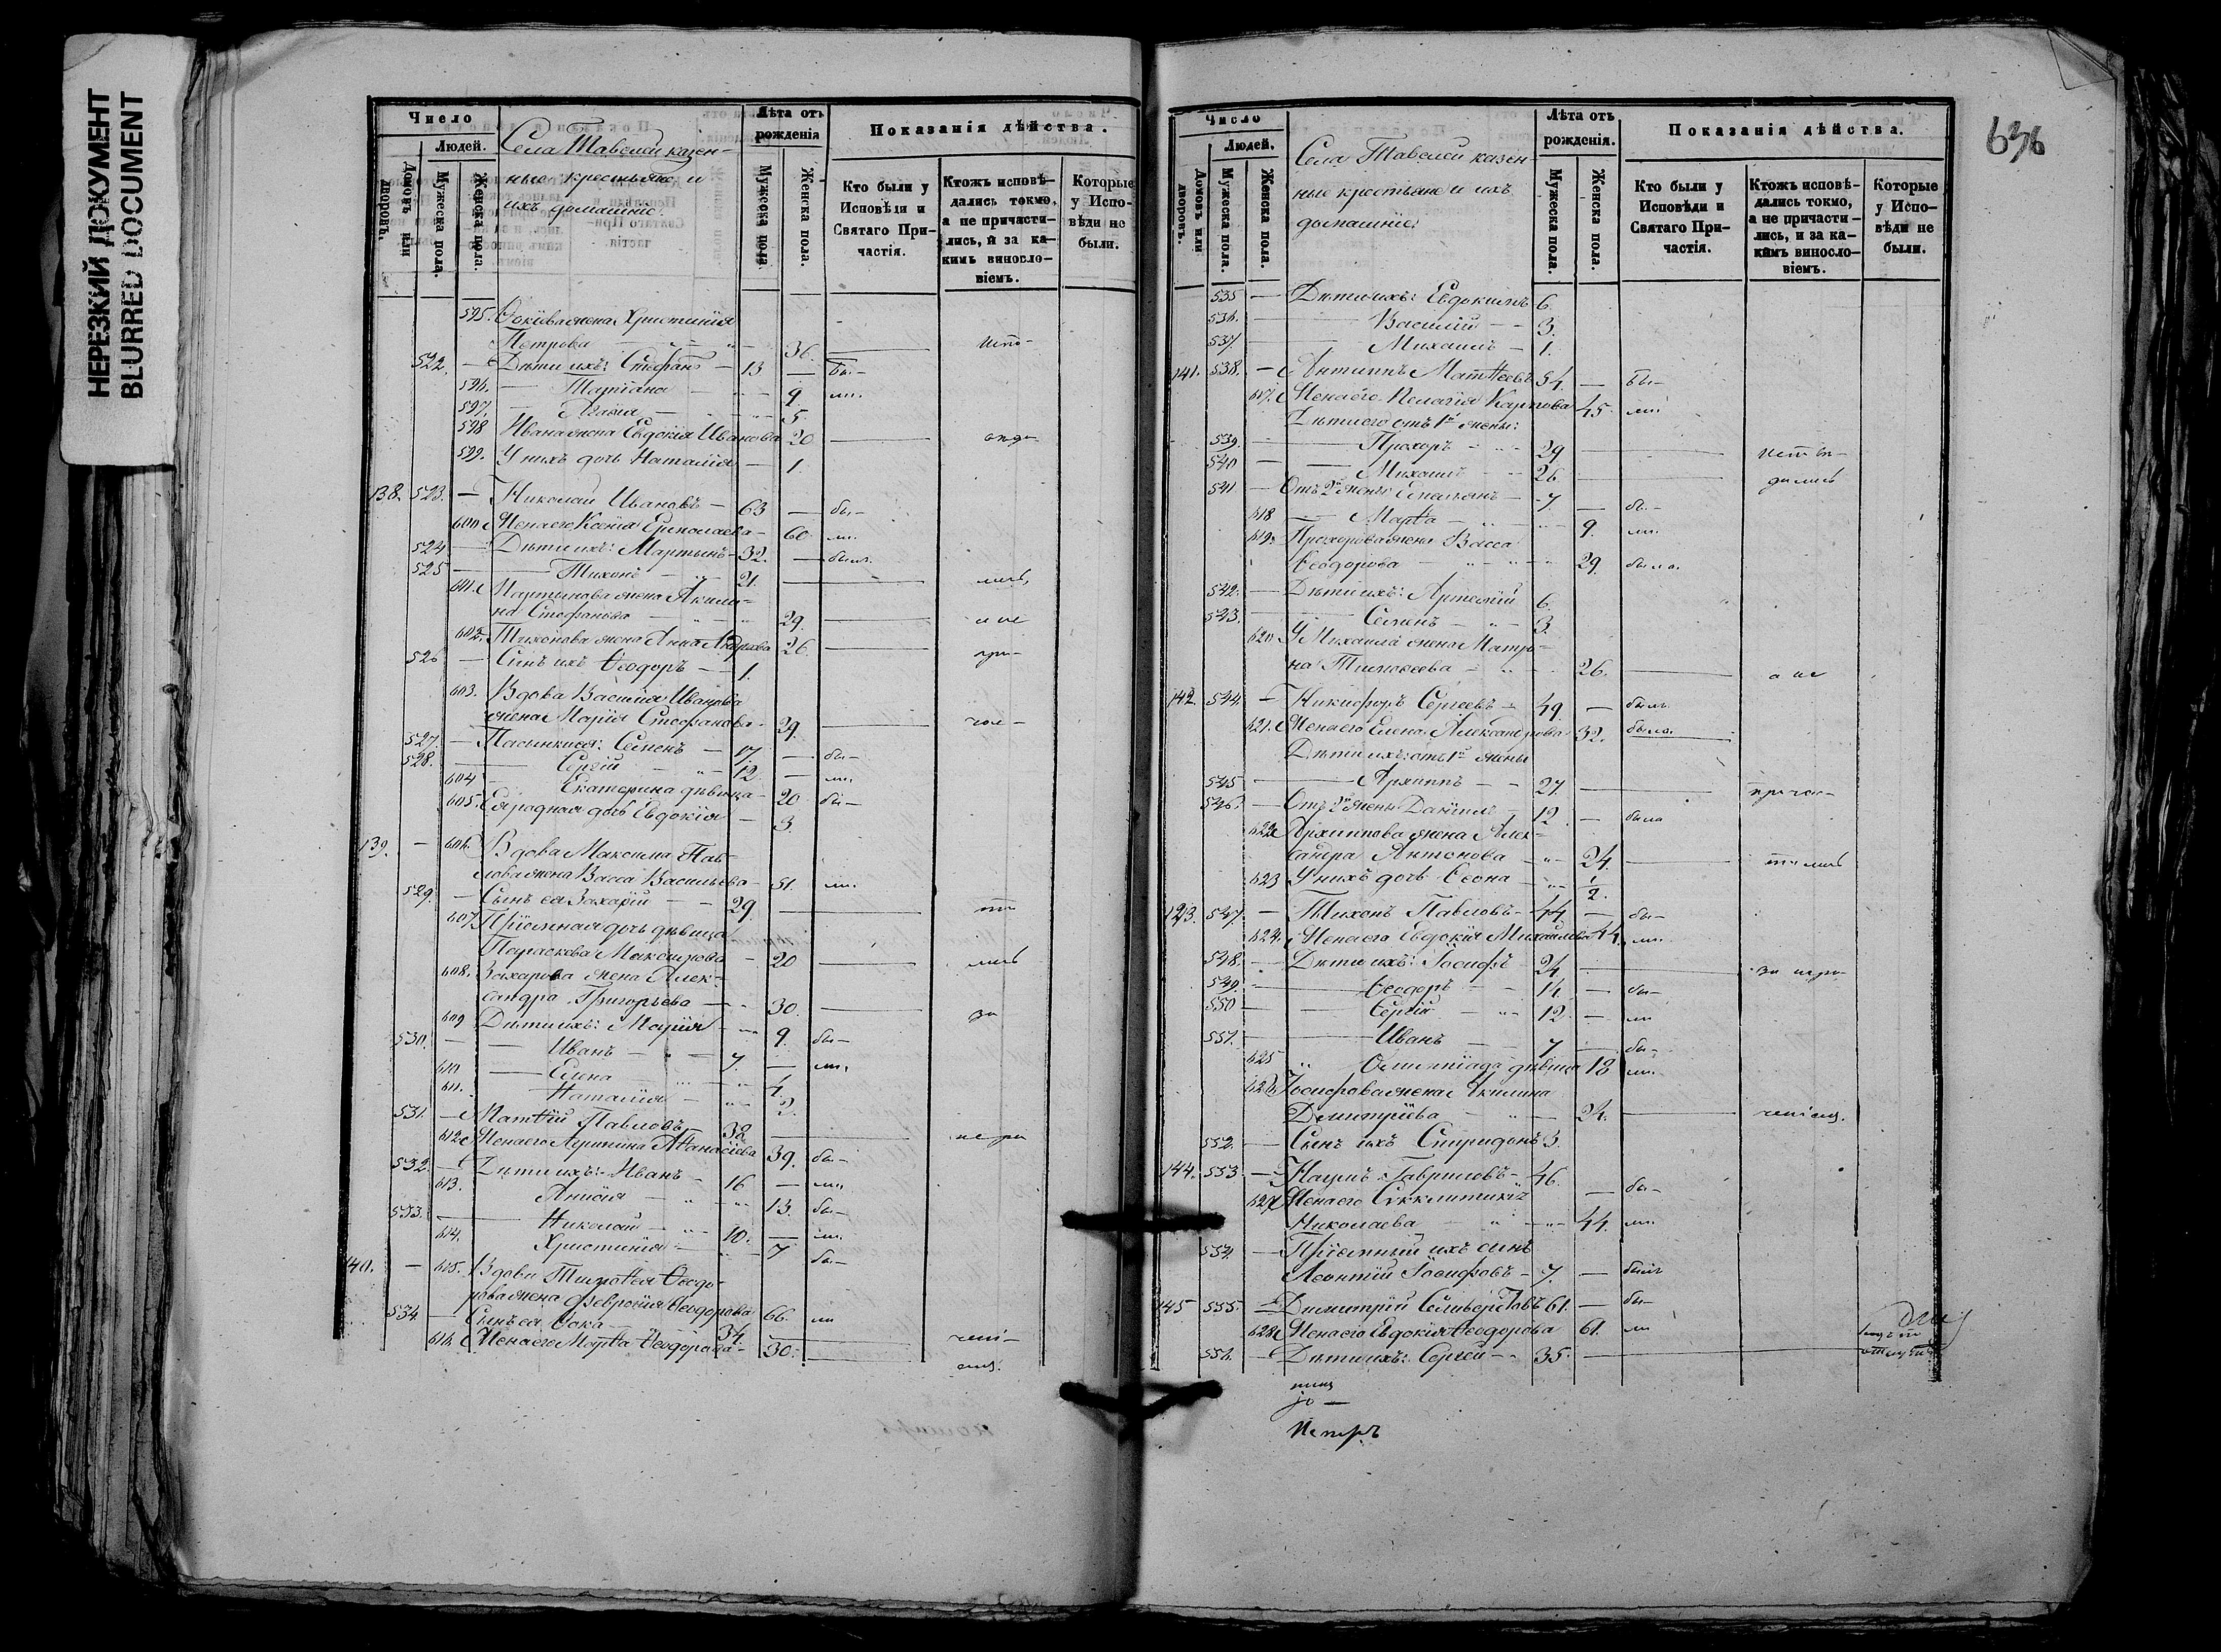 НЕРЕЗКИЙ ДОКУМЕНТ
BLURRED DOCUMENT
Число
Людей.
Домовъ или дворовъ.
Мужеска пола.
Женска пола.
Села Тавели казен-
ные крестьяне и
ихъ домашніе.
Лѣта отъ рожденія
Мужеска пола.
Женска пола.
Показанія дѣйства.
Кто были у Исповѣди и Святаго При-частія.
Ктожъ исповѣ-дались токмо, а не причасти-лись, и за ка-кимъ винослo-віемъ.
Которые у Испо-вѣди не были.
595. Ѳоківа жена Христинія
Петрова 36. испо-
522. — Дѣти ихъ: Стефанъ — 13 — бы-
596. — Татіана — 9 ли.
597. — Агаѳія — 5.
598 Ивана жена Евдокія Иванова 20
599. У нихъ дочь Наталія — 1.
138. 523. — Николай Ивановъ — 63 — бы-
600. Жена его Ксенія Ермолаева — 60 ли.
524. — Дѣти ихъ: Мартынъ — 32. — былъ.
525 — Тихонъ — 21. лись,
601. Мартинова жена Акили-
на Стефанова 29. а не
602. Тихонова жена Анна 26. при-
526 — Сынъ ихъ Ѳеодоръ — 1.
603. Вдова Василія Иванова
жена Марія Стефанова — 39.
527. — Пасынки ея: Семенъ — 17. — бы-
528. — Сергій — 12 — ли.
604 Екатерина дѣвица — 20 бы-
605. Ея родная дочь Евдокія — 3.
139. — 606. Вдова Максима Пав-
лова жена Васса Васильева — 51. ли.
529. — Сынъ ея Захарій — 29.
607. Пріемная дочь дѣвица
Параскева Максимова — 20 лись
608. Захарова жена Алек-
сандра Григорьева — 30. за
609 Дѣти ихъ: Марія — 9. бы-
530. — Иванъ — 7. — ли.
610 — Елена — 4.
611. Наталія — 2.
531. — Матѳій Павловъ 38.
612. Жена его Агрипина Аѳанасіева 39. бы-
532 — Дѣти ихъ: Иванъ — 16 — ли
613. Анисія — 13. бы-
533. — Николай — 10. — ли.
614. Христинія — 7 бы-
140. — 615. Вдова Тимоѳея Ѳеодо-
рова жена Февронія Ѳеодорова 66. ли
534. — Сынъ ея Ѳока — 34.
616. Жена его Марѳа Ѳеодорова — 30.
636
Число
Людей.
Домовъ или дворовъ.
Мужеска пола.
Женска пола.
Села Тавели казен-
ные крестьяне и ихъ
домашніе:
Лѣта отъ рожденія.
Мужеска пола.
Женска пола.
Показанія дѣйства.
Кто были у Исповѣди и Святаго При-частія.
Ктожъ исповѣ-дались токмо, а не причасти-лись, и за ка-кимъ винослo-віемъ.
Которые у Испо-вѣди не были.
535 — Дѣти ихъ: Евдокимъ 6.
536. — Василій — 3.
537. — Михаилъ — 1.
141. 538. — Антипъ Матѳеевъ 54. — бы-
617. Жена его Пелагія Карпова 45. ли.
Дѣти его отъ 1й жены:
539. — Прохоръ — 29 —
540 — Михаилъ — 26 — дались
541 — Отъ 2й жены Емельянъ — 7 — бы-
618 — Марѳа — 9. ли.
619. Прохорова жена Васса
Ѳеодорова — 29. была.
542. — Дѣти ихъ: Артемій 6.
543. — Семенъ — 3.
620 У Михаила жена Матро-
на Тимоѳеева — 26. а не
142. 544. — Никифоръ Сергеевъ — 49. — былъ
621. Жена его Елена Александрова 32. была.
Дѣти ихъ: отъ 1й жены
545 — Архиппъ — 27. — причас-
546. — Отъ 2й жены Даніилъ — 12. —
622 Архиппова жена Алек-
сандра Антонова — 24. тились
623 У нихъ дочь — 1/2.
143. 547. — Тихонъ Павловъ — 44. — бы-
624. Жена его Евдокія Михайлова 44. ли.
548. — Дѣти ихъ: Іосифъ — 24
549. — Ѳеодоръ — 14. — бы-
550 — Сергій — 12. — ли
551. — Иванъ — 7 — бы-
625 Олимпіада дѣвица 18 ли.
626. Іосифова жена Акилина
Димитріева — 24.
552. — Сынъ ихъ Спиридонъ 3.
144. 553. — Наумъ Гавриловъ — 46. — бы-
627. Жена его Сигклитикія
Николаева — 44. ли.
554. — Пріемный ихъ сынъ
Леонтій Іосифовъ — 7. — былъ
145 555. — Димитрій Селиверстовъ 61. — бы-
628. Жена его Евдокія Ѳеодорова 61. ли
556. — Дѣти ихъ: Сергей — 35.
Петръ